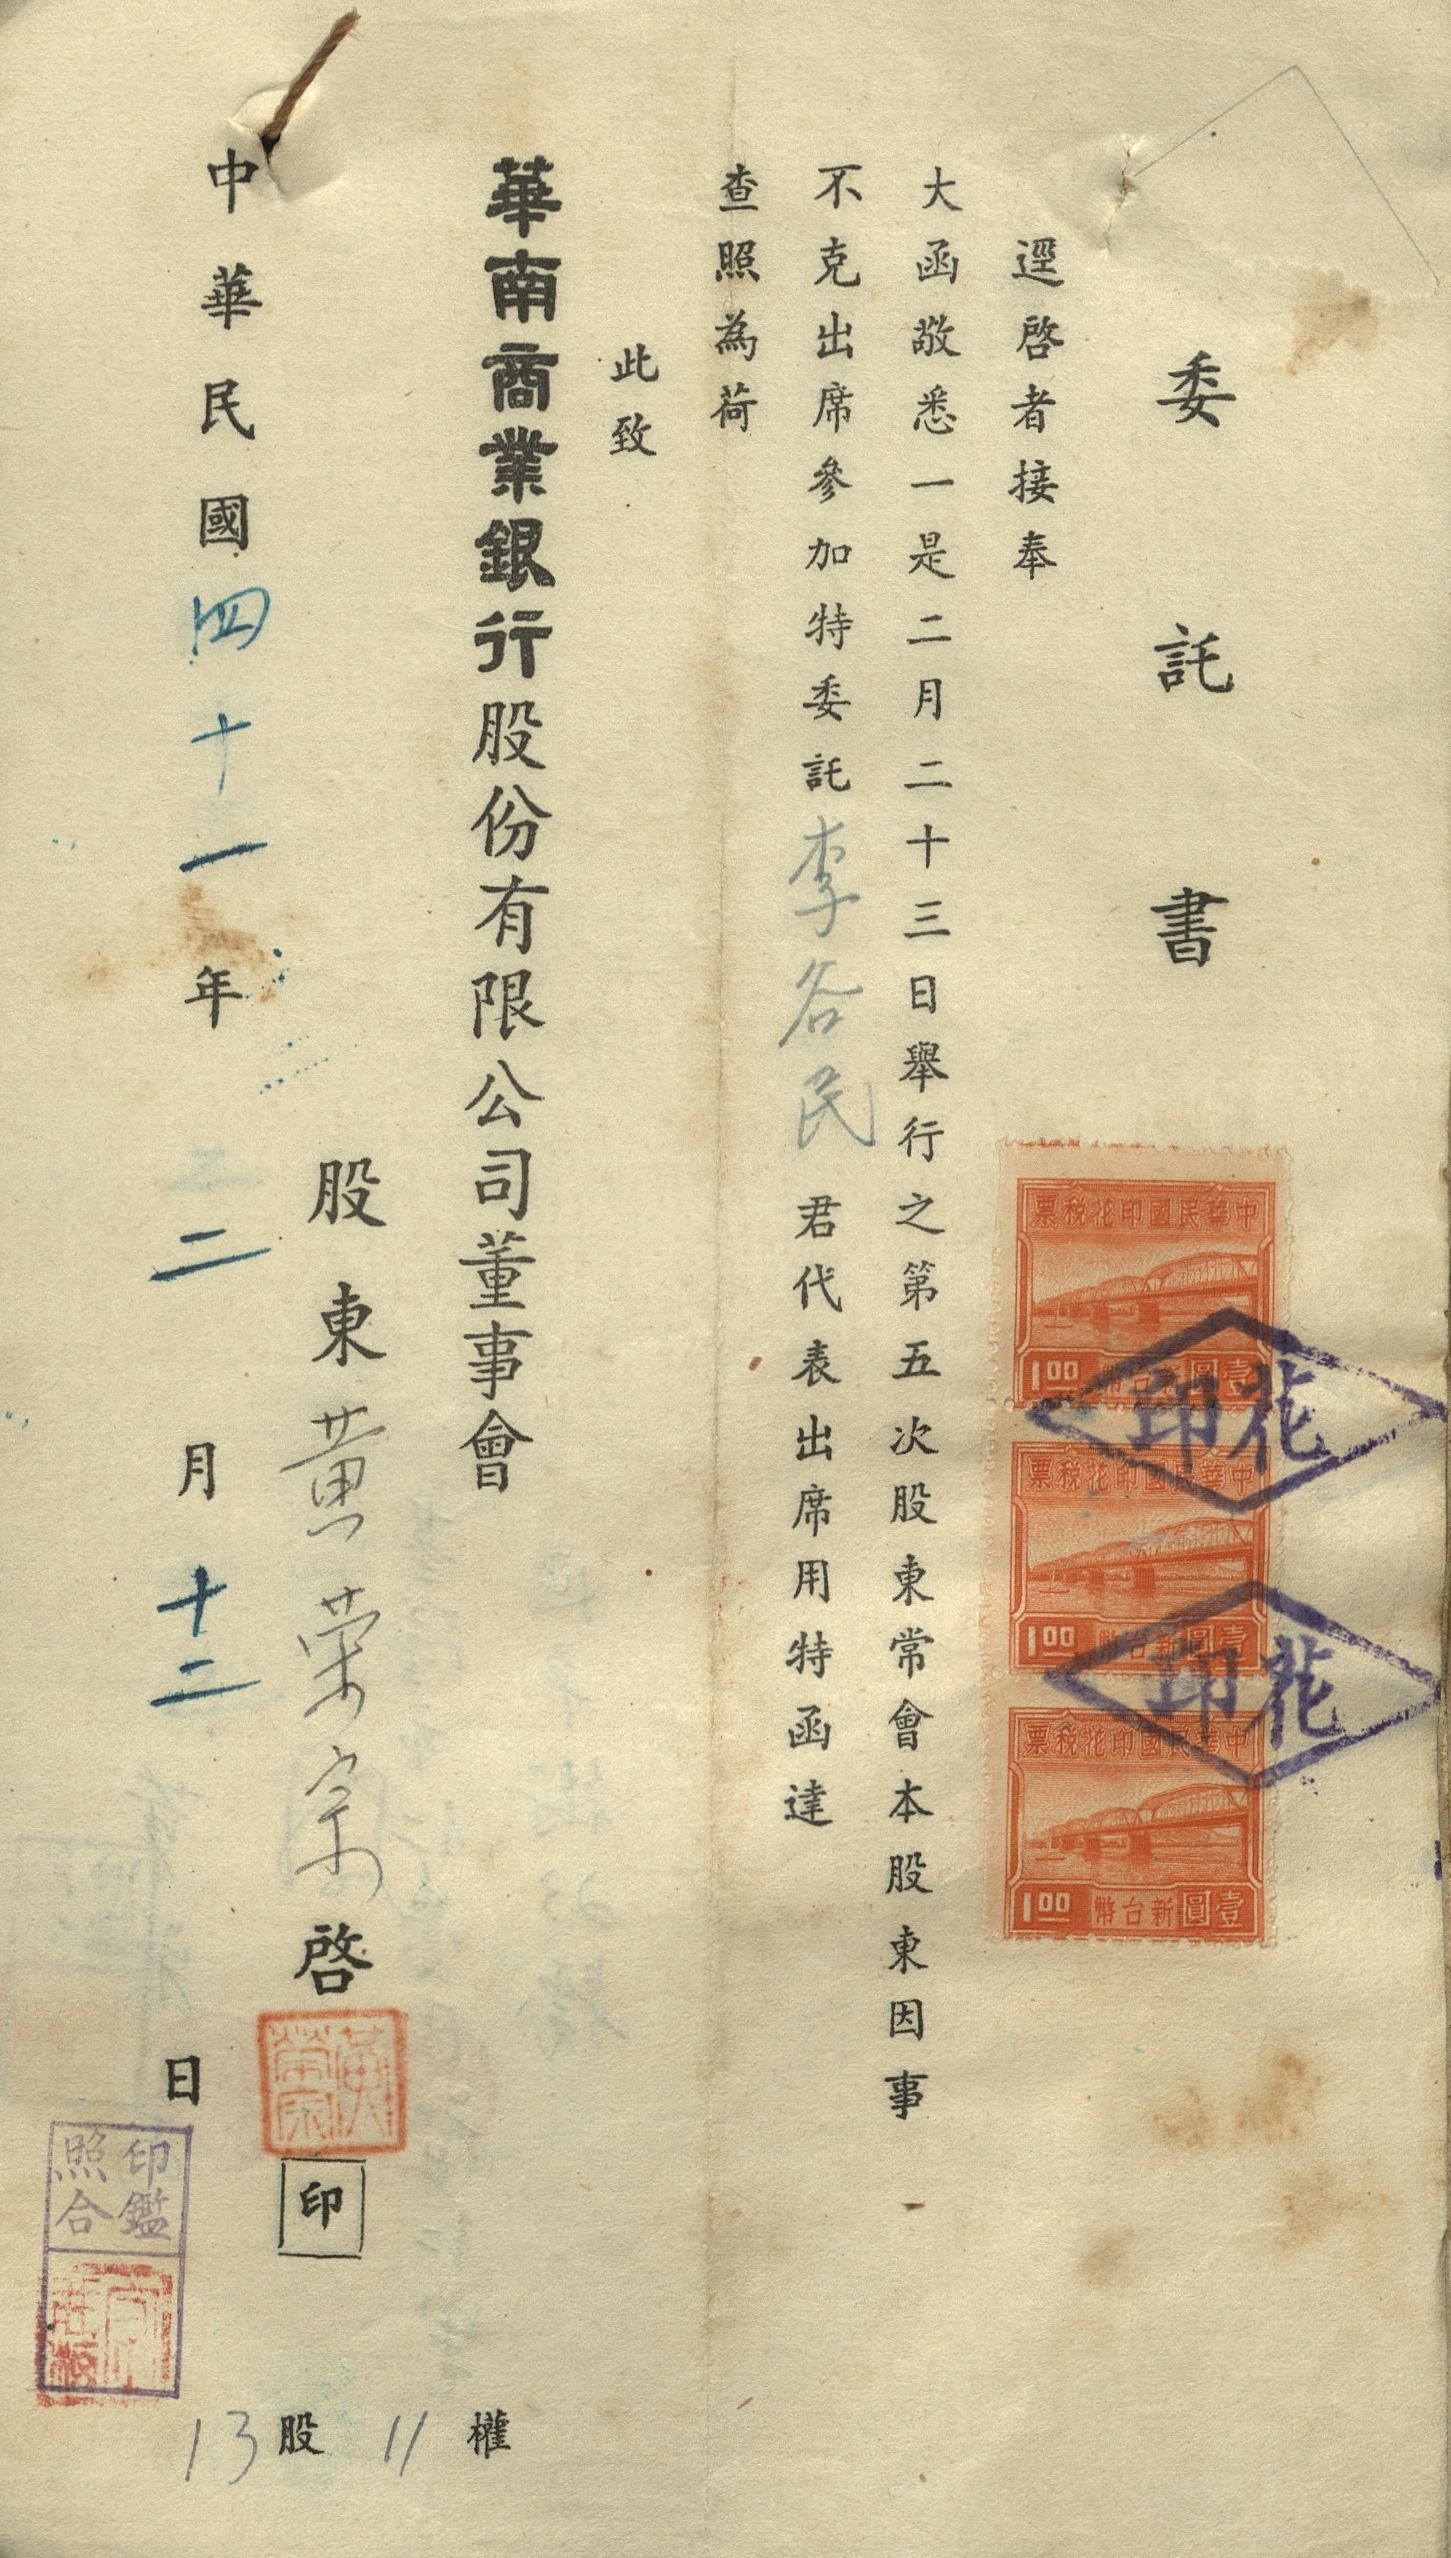 委託書
逕啓者接奉
大函敬悉一是二月二十三日舉行之第五次股東常會本股東因事
不克出席參加特委託李谷民君代表出席用特函達
查照為荷
此致
華南商業銀行股份有限公司董事會
股東黃榮宗啓
印
中華民國四十一年二月十二日
13股11權
中華民國印花稅票
1.00
新台幣壹圓
花印
中華民國印花稅票
1.00
新台幣壹圓
花印
中華民國印花稅票
1.00
新台幣壹圓
黃榮宗
印鑑
照合